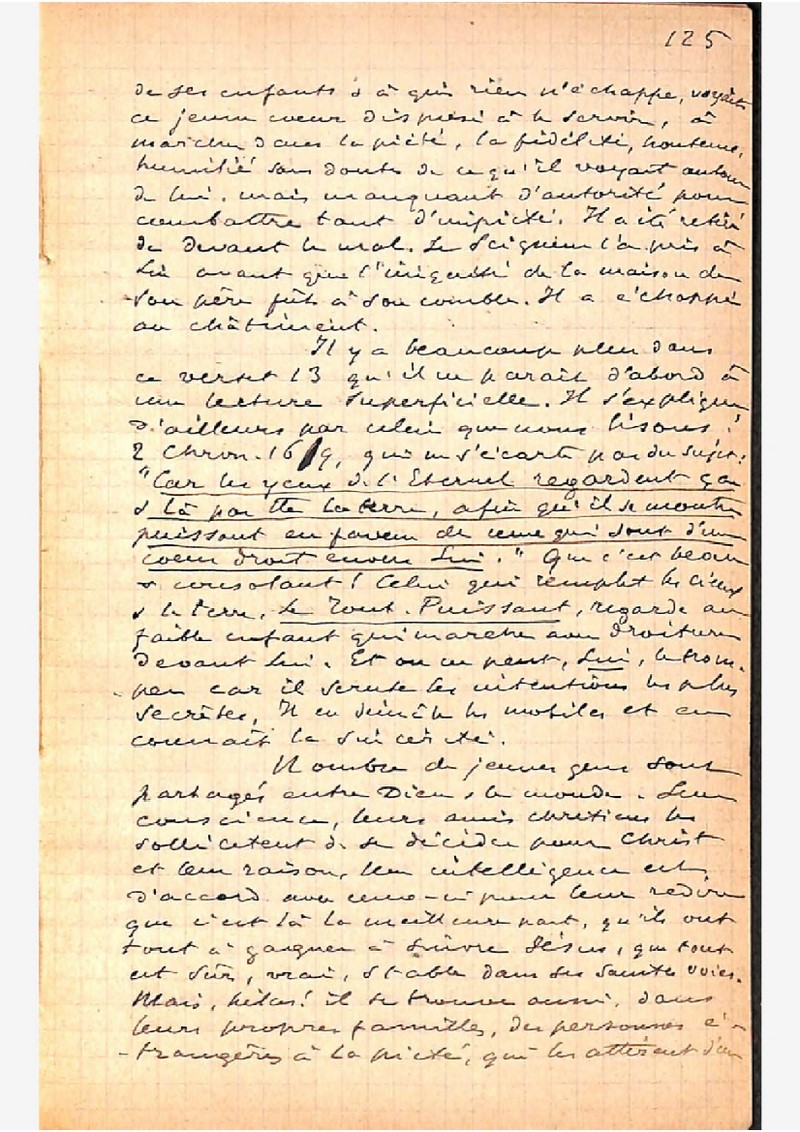 125
de ses enfants & à qui rien n'échappe, voyait
ce jeune coeur disposé à le servir, à
marcher dans la piété, la fidélité, honteux,
humilié sans doute de ce qu'il voyait autour
de lui, mais manquant d'autorité pour
combattre tant d'impiété. Il a été retiré
de devant le mal. Le Seigneur l'a pris à
Lui avant que l'iniquité de la maison de
son père fût à son comble. Il a échappé
au châtiment.
Il y a beaucoup plus dans
ce verset 13 qu'il ne parait d'abord à
une lecture superficielle. Il s'explique
d'ailleurs par celui que nous lisons:
2 Chron. 16/9, qui ne s'écarte pas du sujet:
"Car les yeux de l'Eternel regardent ça
& là par tte la terre, afin qu'il se montre
puissant en faveur de ceux qui sont d'un
coeur droit envers Lui." Que c'est beau
& consolant! Celui qui remplit les cieux
& la terre, le Tout-Puissant, regarde au
faible enfant qui marche avec droiture
devant Lui. Et on ne peut, Lui, le trom-
per car il scrute les intentions les plus
secrètes, Il en démêle les mobiles et en
connait la sincérité.
Nombre de jeunes gens sont
partagés entre Dieu & le monde. Leur
conscience, leurs amis chrétiens les
sollicitent de se décider pour Christ
et leur raison, leur intelligence est
d'accord avec ceux-ci pour leur redire
que c'est là la meilleure part, qu'ils ont
tout à gagner à suivre Jésus, que tout
est sûr, vrai, stable dans ses saintes voies.
Mais, hélas! il se trouve aussi, dans
leurs propres familles, des personnes é-
-trangères à la piété, qui les attirent d'un